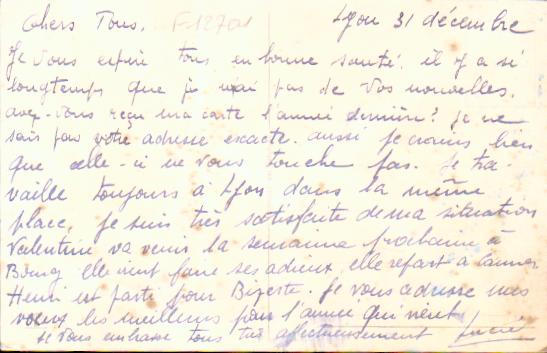 Chers Tous. F-12701 Lyon 31 décembre
Je vous espère tous en bonne santé. il y a si
longtemps que je n'ai pas de vos nouvelles.
avez-vous reçu ma carte l'année dernière? je ne
sais pas votre adresse exacte. aussi je crains bien
que celle-ci ne vous touche pas. Je tra-
vaille toujours à Lyon dans la même
place, je suis très satisfaite de ma situation
Valentine va venir la semaine prochaine à
Bourg elle vient faire ses adieux, elle repart a
Henri est parti pour Bizerte. Je vous adresse mes
voeux les meilleurs pour l'année qui vient
je vous embrasse tous très affectueusement